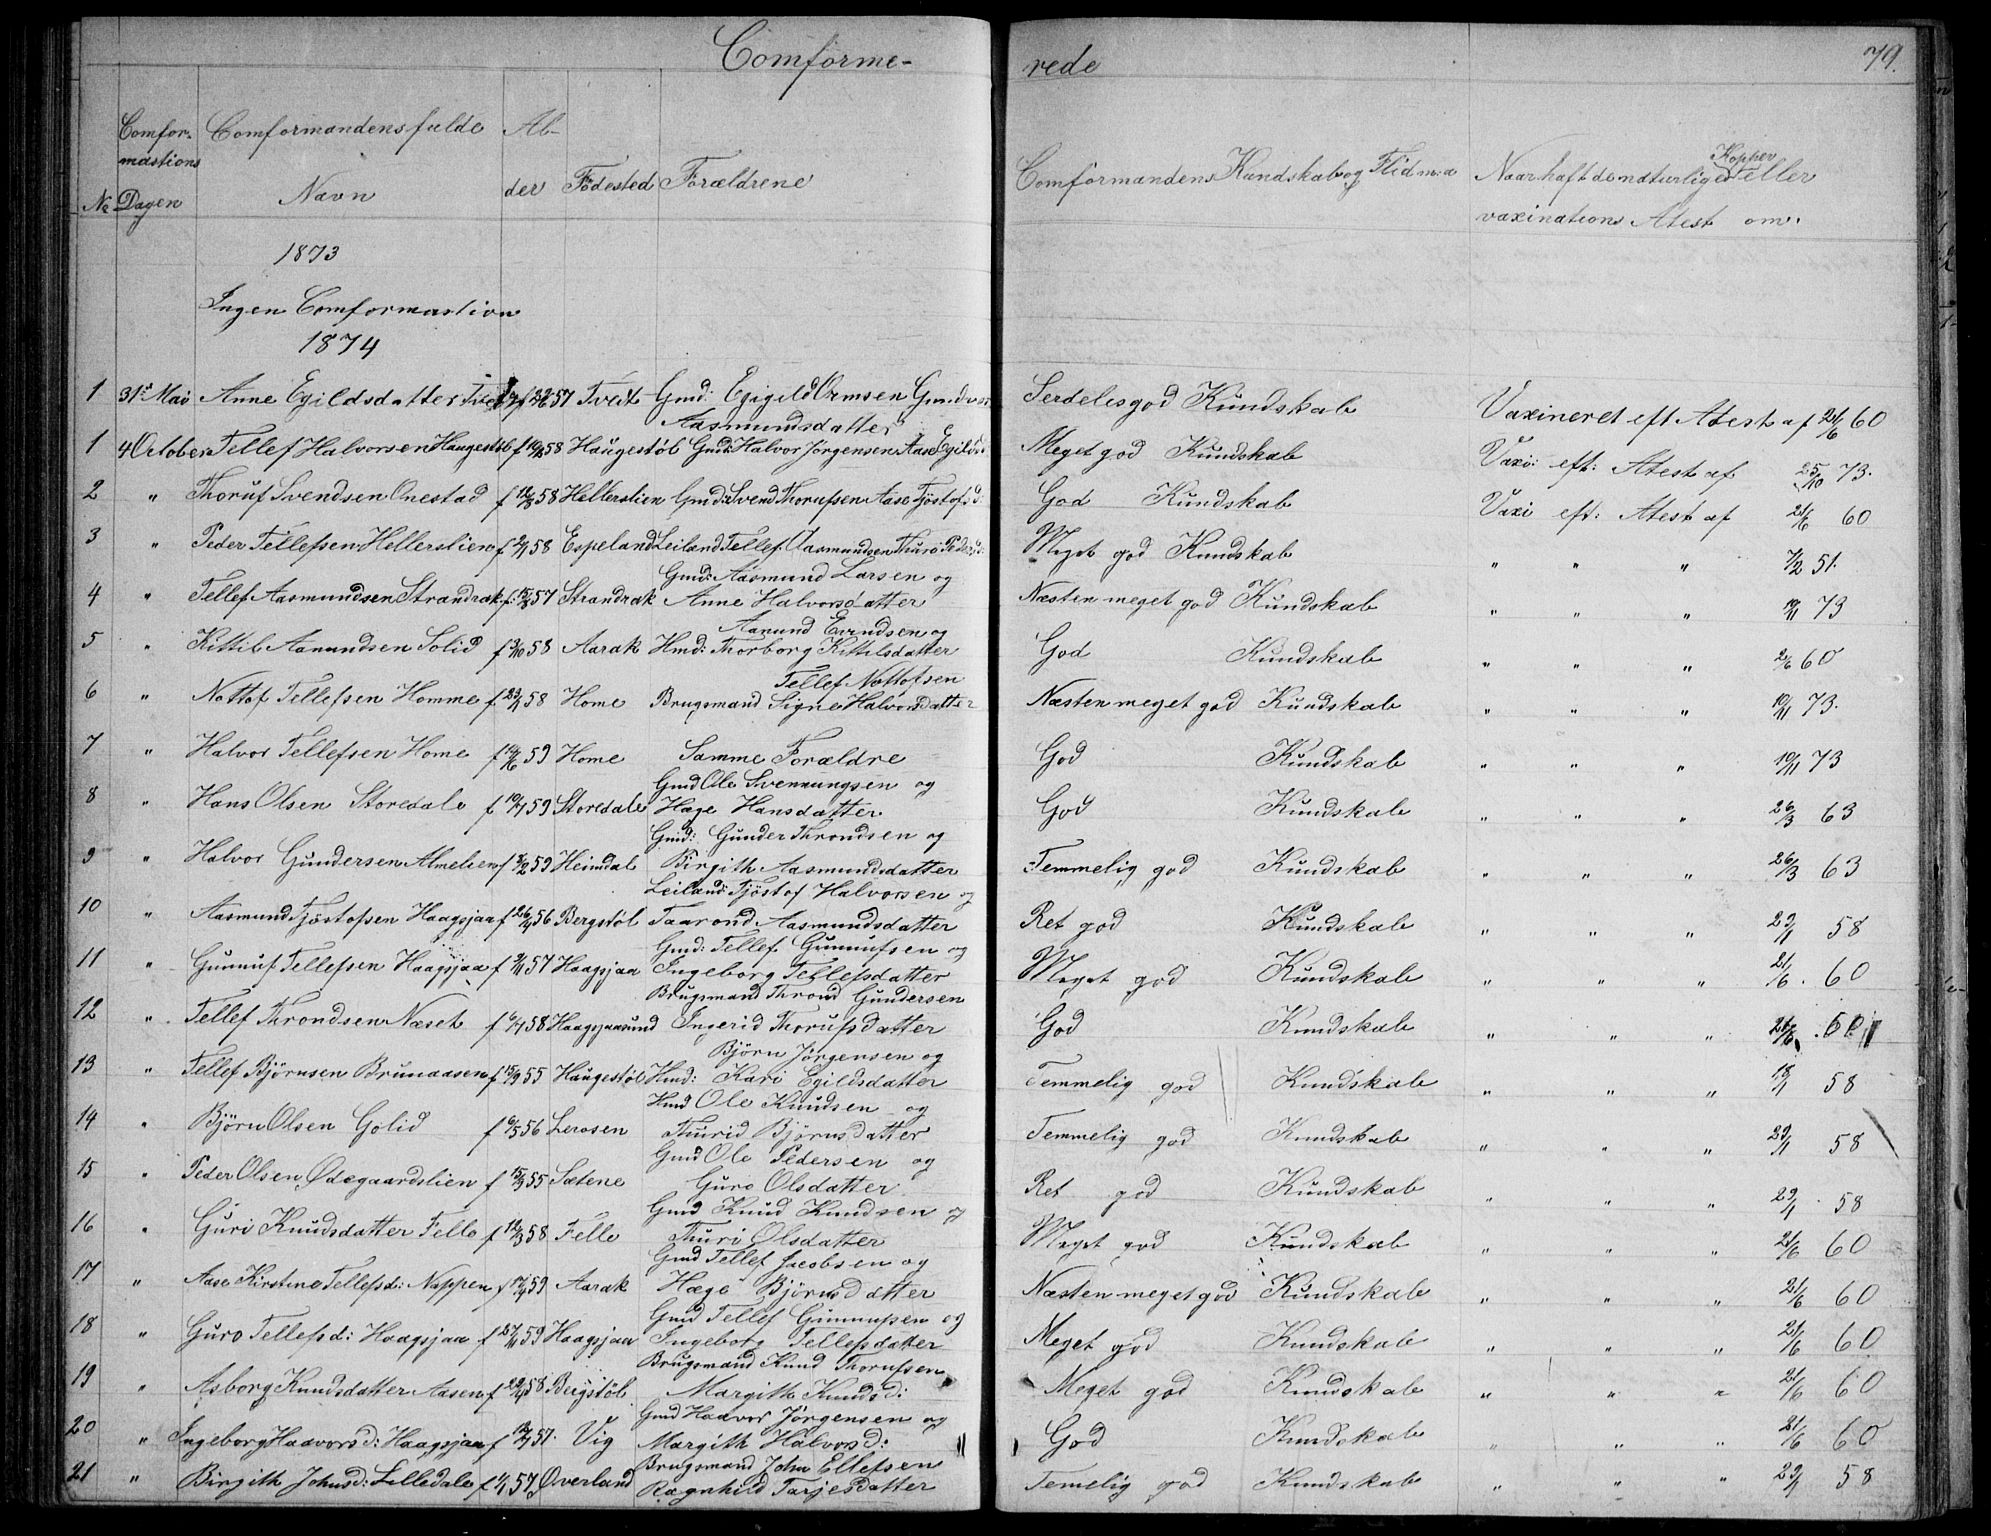 Comforme- rede 79.
Comfor-mastions Dagen
No
Comformandens fulde Navn
Al-der
Födested
Forældrene
Comformandens Kundskab og Flid m: a
Naar haft de naturlige Kopper eller
vaxinations Atest om.
1873
Ingen Comformastion
1874
1 31te Mai Anne Egildsdatter Tvedt 57 Tvedt Gmd: Egigild Ormsen Aasmundsdatter Serdeles god Kundskab Vaxineret eft Atest af 21/6 60
1 4 October Tellef Halvorsen Haugestöb 58 Haugestöb Gmd: Halvor Jörgensen Aase Egilds Meget god Kundskab Vaxi: eft: Atest af 25/10 73.
2 " Thoruf Svendsen Onestad f 58 Hellerslien Gmd: Svend Thorufsen Aase Tjöstofsd: God Kundskab Vaxi eft: Atest af 21/6 60
3 " Peder Tellefsen Hellerslien f 58 Espeland Leiland Tellef Aasmundsen Thurö Pedersd: Meget god Kundskab " " " 7/2 51.
4 " Tellef Aasmundsen Strandrak f: 57 Strandrak Gmd: Aasmund Larsen og Anne Halvorsdatter Næsten meget god Kundskab " " " 10/11 73
5 " Kittil Aanundsen Solid f 3/10 58 Aarak Hmd: Aanund Evendsen og Thorborg Kittilsdatter God Kundskab " " " 60
6 " Nottof Tellefsen Homme f 58 Home Brugsmand Tellef Nottofsen Signe Halvorsdatter Næsten meget god Kundskab " " " 10/11 73.
7 " Halvor Tellefsen Home f 59 Home Samme Forældre God Kundskab " " " 10/11 73
8 " Hans Olsen Storedale f 59 Storedale Gmd Ole Svennungsen og Hæge Hansdatter God Kundskab " " " 26/3 63
9 " Halvor Gundersen Almelien f 59 Heimdal Gmd: Gunder Throndsen og Birgith Aasmundsdatter Temmelig god Kundskab " " " 26/3 63
10 " Aasmund Tjöstofsen Haagsjaa f 26/4 56 Bergstöl Leiland: Tjöstof Halvorsen og Taarond Aasmundsdatter Ret god Kundskab " " " 58
11 " Gunnuf Tellefsen Haagsjaa f 57 Haagsjaa Gmd: Tellef Gunnufsen og Ingeborg Tellefsdatter Meget god Kundskab " " " 21/6 60
12 " Tellef Throndsen Næset f 58 Haagsjaasund Brugsmand Thrond Gundersen Ingerid Thorufsdatter God Kundskab " " " 21/6 60
13 " Tellef Björnsen Brunaasen f 15/9 55 Haugestöl Hmd: Björn Jörgensen og Kari Egildsdatter Temmelig god Kundskab " " " 58
14 " Björn Olsen Golid f 6/5 56 Lerosen Hmd Ole Knudsen og Thurid Björnsdatter Temmelig god Kundskab " " " 58
15 " Peder Olsen Ödegaardslien f 15/3 55 Sætene Gmd Ole Pedersen og Guro Olsdatter Ret god Kundskab " " " 58
16 " Guri Knudsdatter Felle f 12/3 58 Felle Gmd Knud Knudsen og Thuri Olsdatter Meget god Kundskab " " " 21/6 60
17 " Aase Kirstine Tellefsd: Nappen f 59 Aarak Gmd Tellef Jacobsen og Hæge Björnsdatter Næsten meget god Kundskab " " " 21/6 60
18 " Guro Tellefsd: Haagsjaa f 59 Haagsjaa Gmd Tellef Gunnufsen og Ingeborg Tellefsdatter Meget god Kundskab " " " 21/6 60
19 " Asborg Knudsdatter Aasen f 58 Bergstöl Brugsmand Knud Thorufsen Margith Knudsd: Meget god Kundskab " " " 21/6 60
20 " Ingeborg Haavorsd: Haagsjaa f 57. Vig Gmd Haavor Jörgensen og Margith Halvorsd: God Kundskab " " " 21/6 60
21 " Birgith Johnsd: Lilledale f 57 Överland Brugsmand John Ellefsen Ragnhild Tarjesdatter Temelig god Kundskab " " " 58